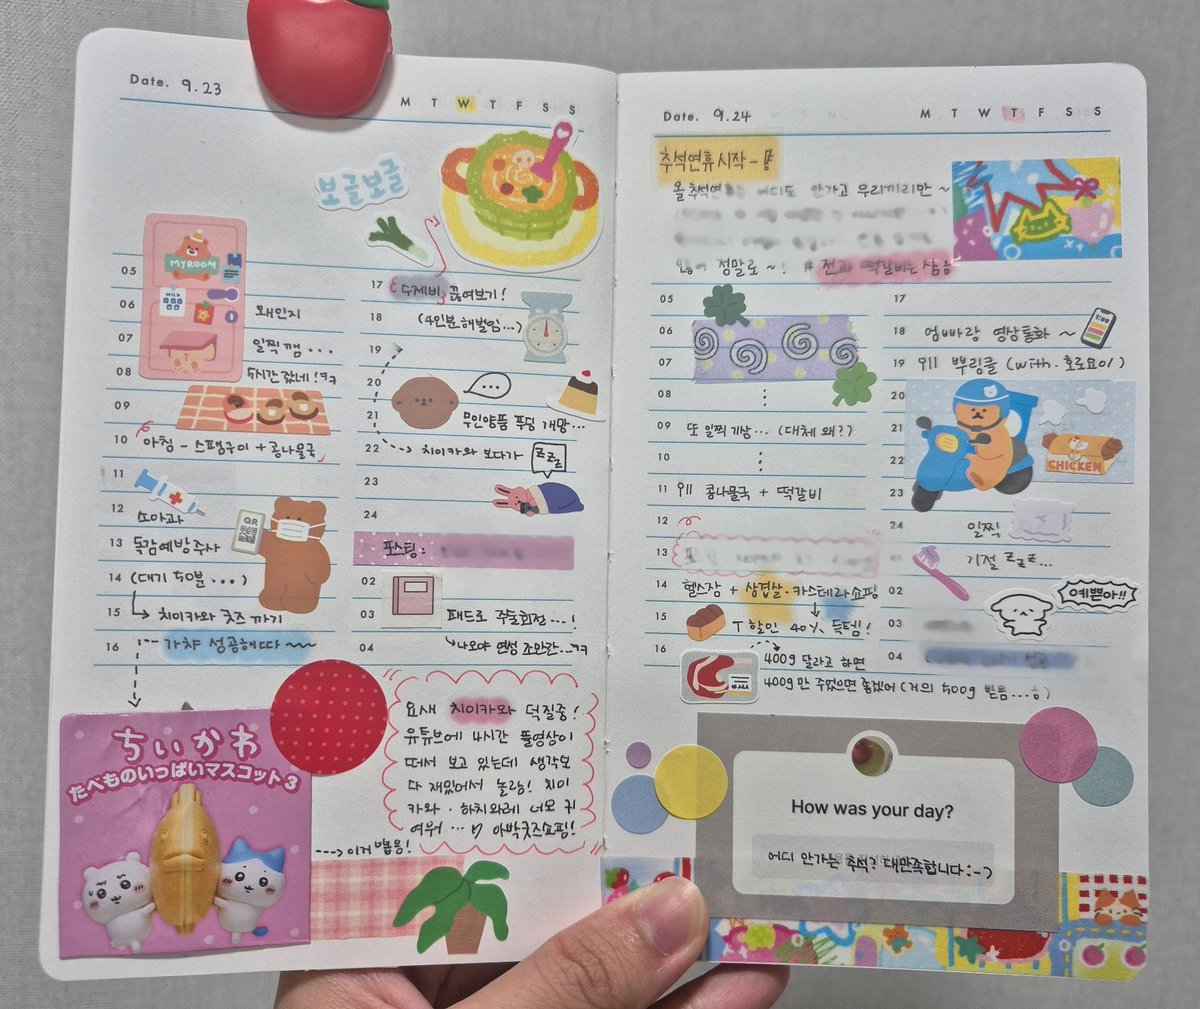 Date. 9.23
M T W T F S S
보글보글
MY ROOM
MILK
05
06 왜인지
07 일찍 깸...
08 5시간 잤네!ㅋㅋ
09
10 아침 - 스팸구이 + 콩나물국
11
12 소아과
QR
13 독감예방주사
14 (대기 50분...)
15 치이카와 굿즈 까기
16 가챠 성공해따 ~~~
17 수제비 끓여보기!
18 (4인분 해벌임...)
19
20
21 무인양품 푸딩 개망...
22 치이카와 보다가
zzz
23
24
포스팅:
02
03 패드로 주술회전...!
04 나오야 연성 조만간...ㅋㅋ
요새 치이카와 덕질중!
유튜브에 4시간 풀영상이
떠서 보고 있는데 생각보
다 재밌어서 놀랑! 치이
카와·하치와레 너모 귀
여워 ... 아박굿즈쇼핑!
ちいかわ
たべものいっぱいマスコット3
이거 뽑음!
Date. 9.24
M T W T F S S
추석연휴 시작-
올 추석연휴는 어디도 안가고 우리끼리만 ~
않어 정말로~! # 전과 떡갈비는 삼
05
06
07
08
09 또 일찍 기상... (대체 왜?)
10
11 콩나물국 + 떡갈비
12
13
14 헬스장 + 삼겹살·카스테라 쇼핑
15 T 할인 40% 득템!
16 400g 달라고 하면
400g만 주었으면 좋겠어 (거의 500g 받음...)
17
1:00
18 엄빠랑 영상통화 ~
19 뿌링클 (with. 호로요이)
20
21
22
CHICKEN
23
24 일찍
기절 zzz...
02
예쁜아!!
03
04
How was your day?
어디 안가는 추석? 대만족합니다:-)